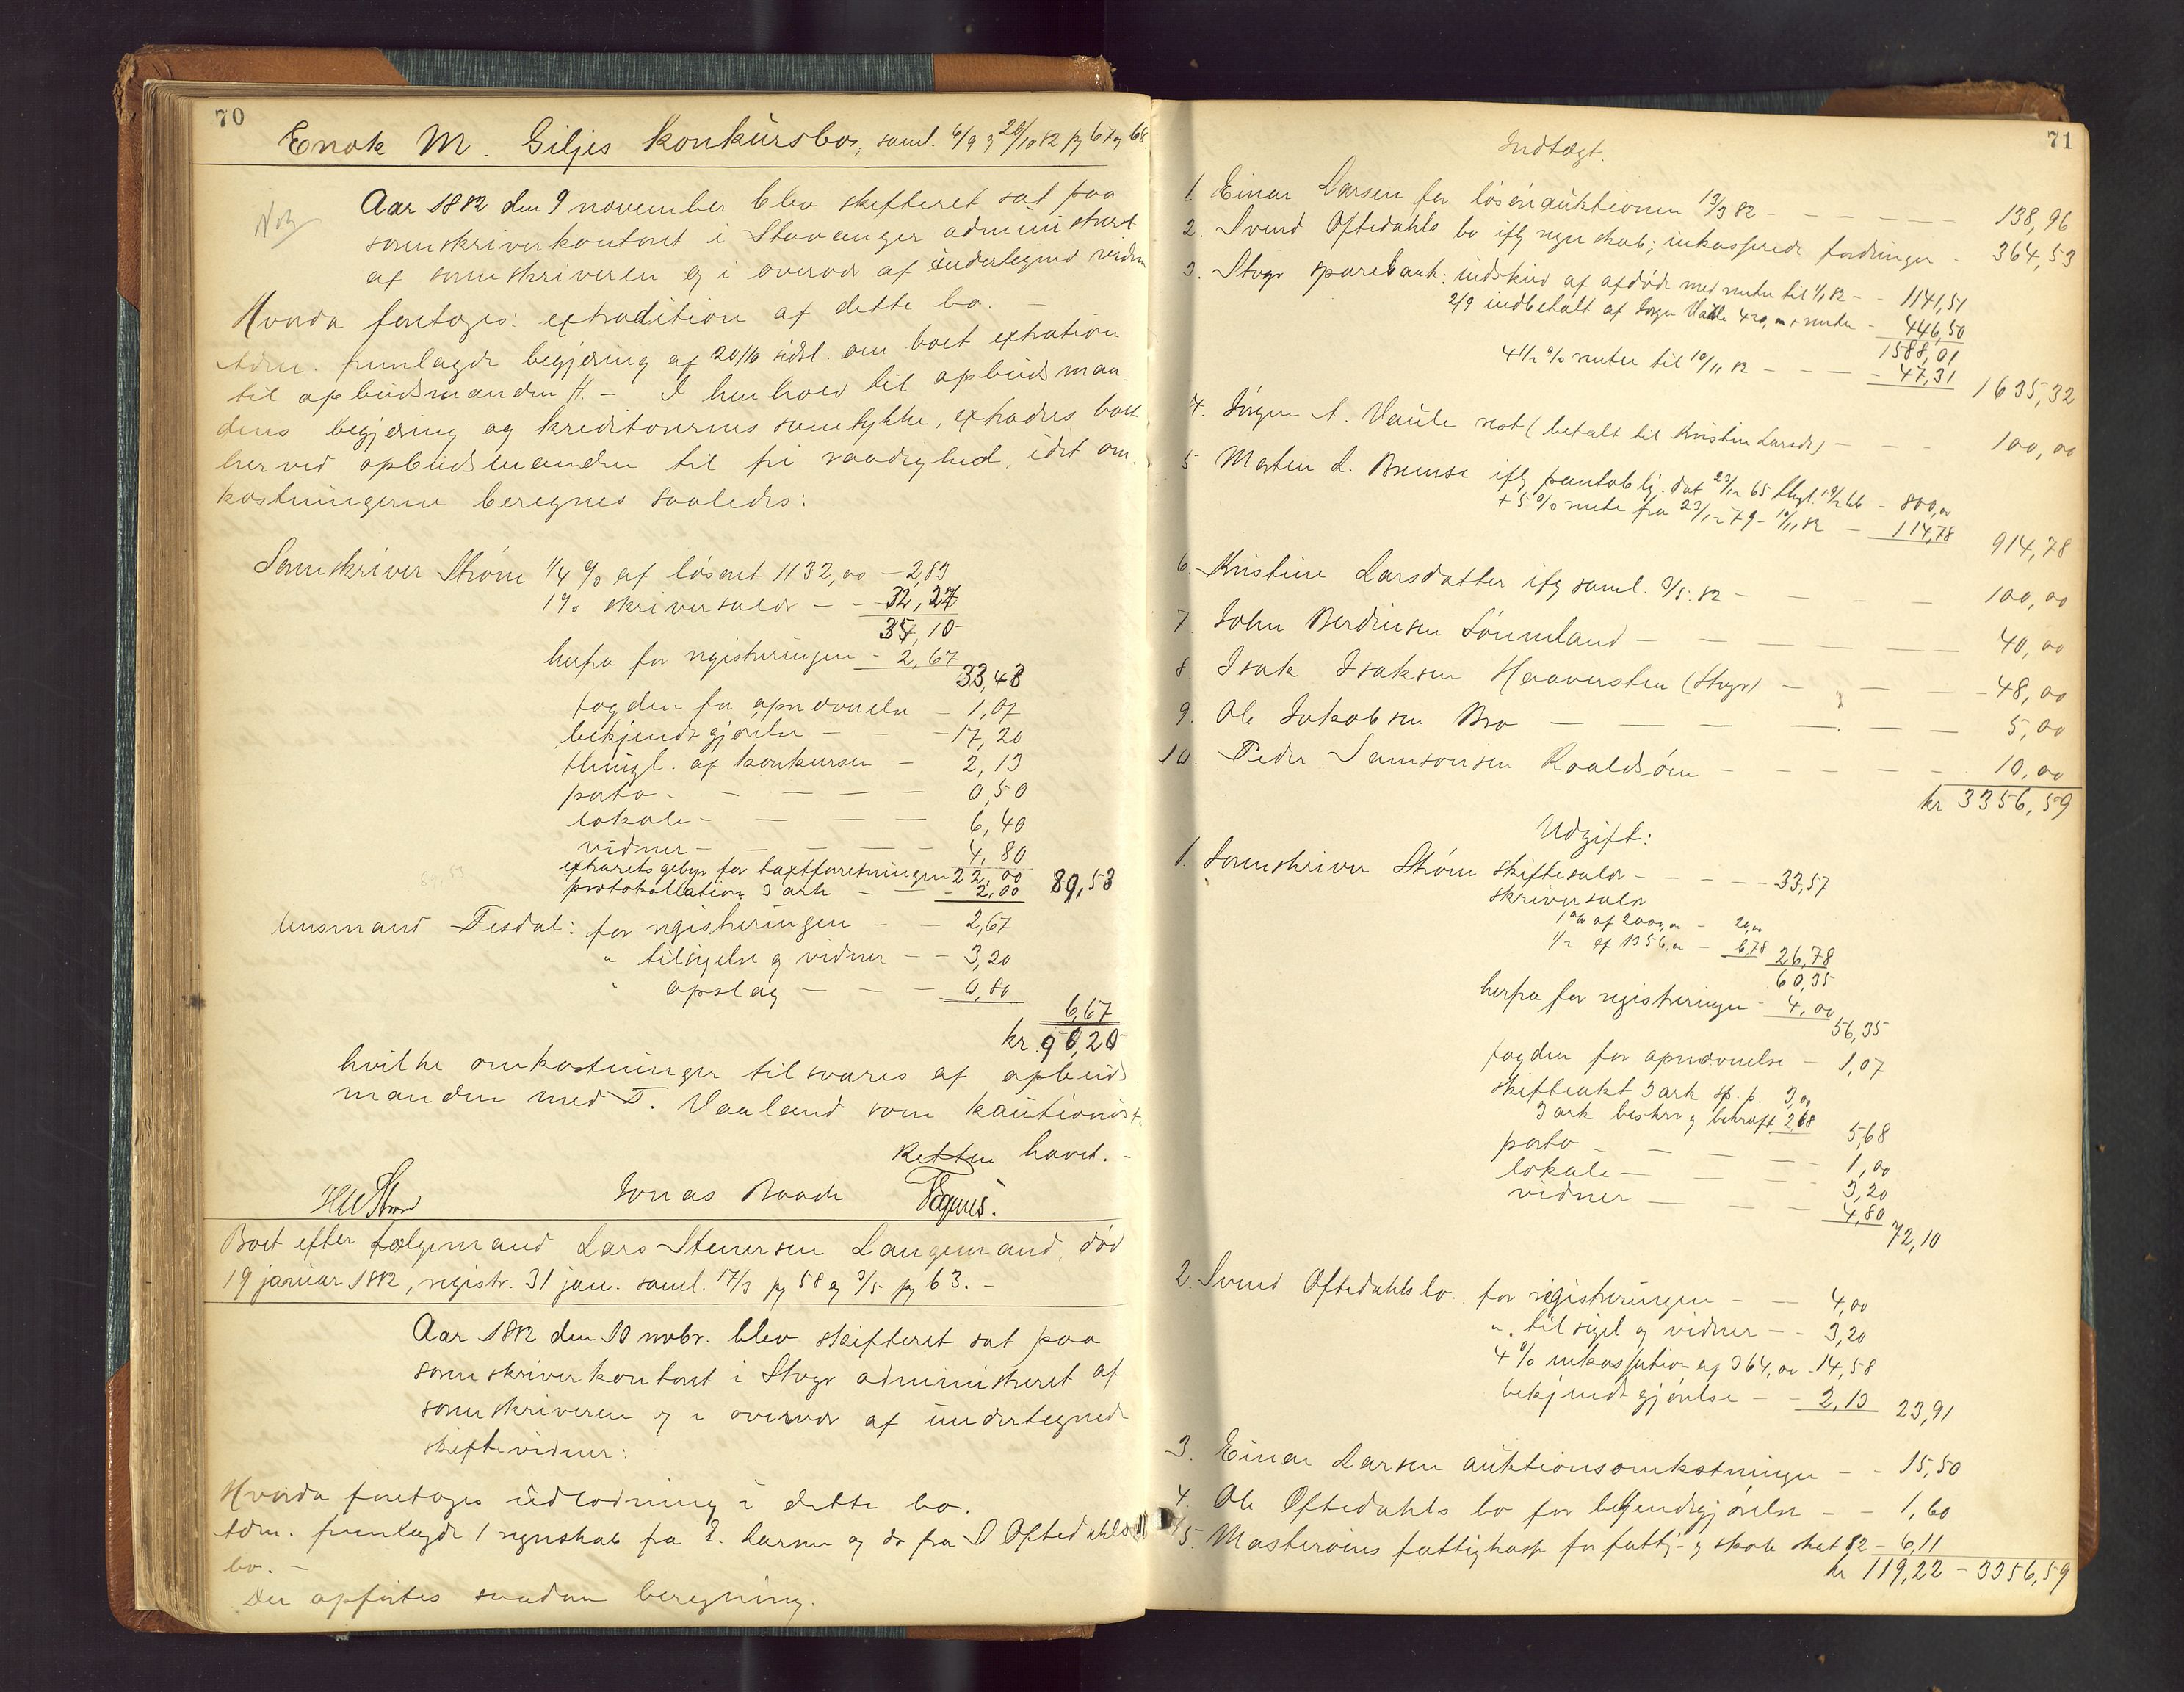 70
Enok M. Giljes konkursbo, saml. 6/9 og 20/10 82 pg 67 og 68
Aar 1882 den 9 november blev skifteret sat paa
sorenskriverkontoret i Stavanger administreret
af sorenskriveren og i overvær af undertegnede vidner
Hvorda foretoges: extradition af dette bo. –
Adm. fremlagde begjæring af 20/10 sidstl. om boet extration
til opbudsmanden #. – I henhold til opbudsman-
dens begjæring og kreditorernes samtykke, extraderes boet
herved opbudsmanden til fri raadighed, idet om-
kostningerne beregnes saaledes:
Sorenskriver Strøm 1/4 % af løsøret 1132,00 – 2,83
1% skriversalær – – 32,27
35,10
herfra for registreringen – 2,67
33,43
fogden for opnævnelse – 1,07
bekjendtgjørelse – – 17,20
thingl. af konkursen – 2,13
porto – – – – 0,50
lokale – – – – 6,40
vidner – – – – 4,80
extrarets gebyr for taxtforretningen 22,00
protokollation 3 ark – – 2,00 89,53
lensmand Tesdal: for registreringen – – 2,67
" tilsigelse og vidner – – 3,20
" opslag – – – 0,80
6,67
kr. 96,20
hvilke omkostninger tilsvares af opbuds-
manden med T. Vaaland som kautionist.
Retten hævet. –
HWStrøm Jonas Baade
Boet efter følgemand Lars Stenersen Langemand, død
19 januar 1882, registr. 31 jan. saml. 17/3 pg 58 og 3/5 pg 63. –
Aar 1882 den 10 novbr. blev skifteret sat paa
sorenskriverkontoret i Stvgr administreret af
sorenskriveren og i overvær af undertegnede
skiftevidner:
Hvorda foretoges udlodning i dette bo.
Adm. fremlagde 1 regnskab fra E. Larsen og do fra S Oftedahls
bo. –
Der opførtes saadan beregning.
71
Indtægt.
1. Einar Larsen for løsøreauktionen 13/3 82 – – – – – – 138,96
2. Svend Oftedahls bo iflg regnskab; inkasserede fordringer – 364,53
3. Stvgr sparebank: indskud af afdøde med renter til 1/1 82 – – 1141,51
2/9 indbetalt af Jørgen Vaule 420,00 + renter – 446,50
1588,01
4 1/2 % renter til 10/11 82 – – – – 47,31 1635,32
4. Jørgen A. Vaule rest (betalt til Kristine Larsdr) – – – 100,00
5 Morten L. Bremse iflg pantoblig. dat 23/12 65 thgl. 19/2 66 – 800,00
+ 5 % rente fra 23/12 79 – 10/11 82 – 114,78 914,78
6. Kristine Larsdatter iflg saml. 3/5 82 – – – – – 100,00
7. John Berdinsen Sønmland – – – – – – 40,00
8. Isak Isaksen Haaversten (Stvgr) – – – – 48,00
9. Ole Jakobsen Bro – – – – – – 5,00
10. Peder Samsonsen Roaldsøen – – – – – 10,00
kr 3356,59
Udgift:
1. Sorenskriver Strøm skiftesalær – – – – – 33,57
skriversalær
1% af 2000,00 – 20,00
1/2 af 1356,00 – 6,78 26,78
60,35
herfra for registreringen – 4,00
56,35
fogden for opnævnelse – 1,07
skifteakt 3 ark sp. p. 3,00
3 ark beskrv og bekræft 2,68 5,68
porto – – – – – 1,00
lokale – – – – 3,20
vidner – – – 4,80
72,10
2. Svend Oftedahls bo. for registreringen – – 4,00
". tilsigel og vidner – – 3,20
4 % inkassation af 364,00 – 14,58
bekjendtgjørelse – – 2,13 23,91
3. Einar Larsen auktionsomkostninger – – 15,50
4. Ole Oftedahls bo for bekjendtgjørelse – – 1,60
5. Mosterøens fattigkasse for fattig- og skole skat 82 – 6,11
kr 119,22 – 3356,59